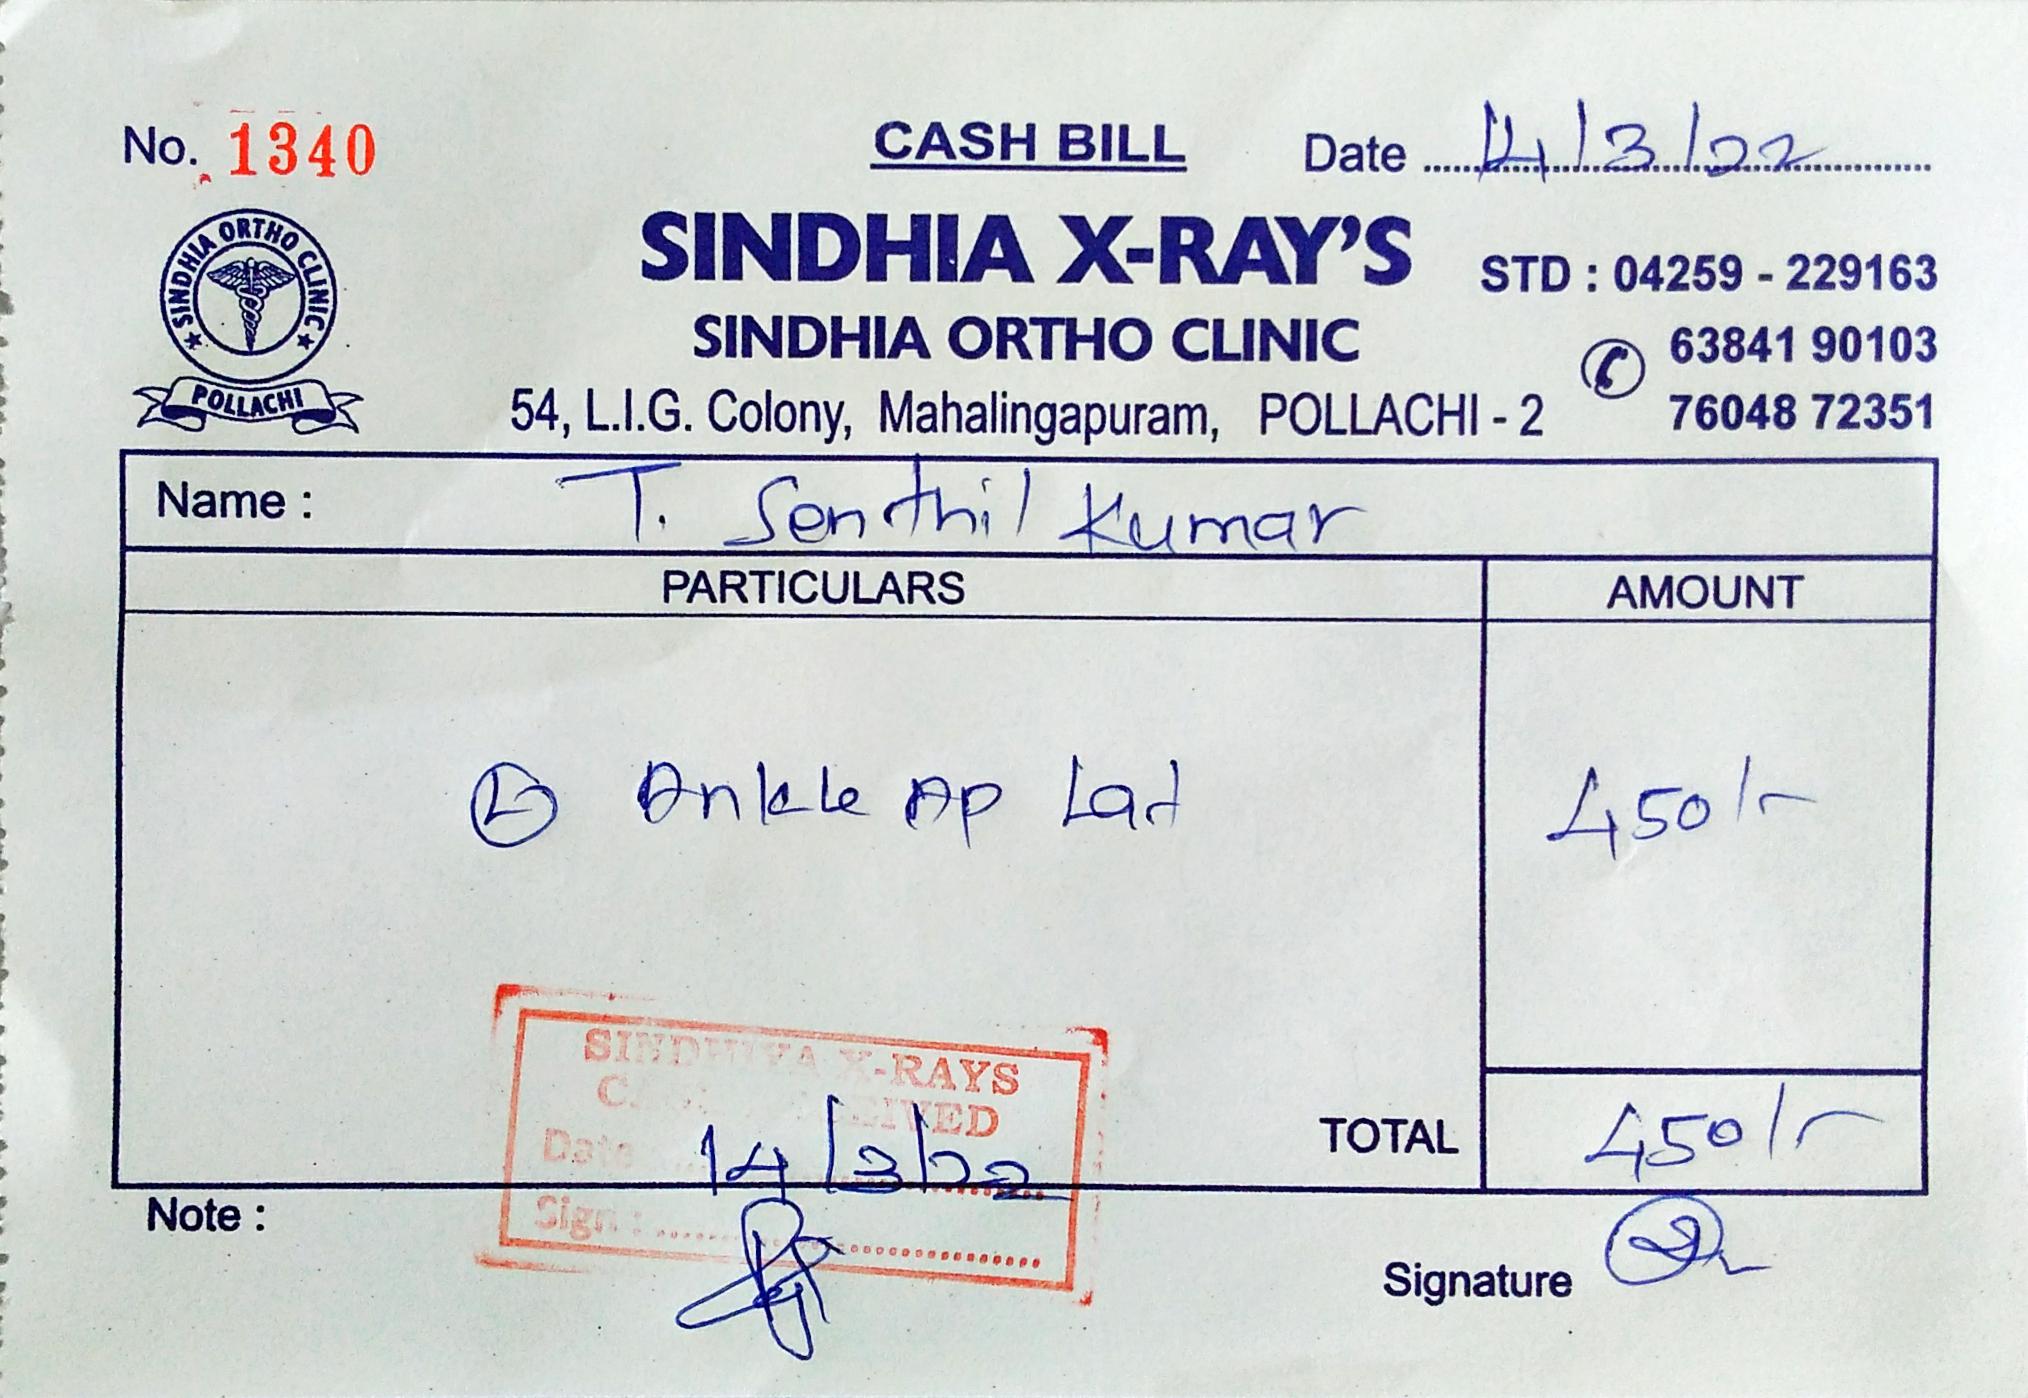 No. 1340
CASH BILL
Date 14/3/22
SINDHIA ORTHO CLINIC
POLLACHI
SINDHIA X-RAY'S
SINDHIA ORTHO CLINIC
54, L.I.G. Colony, Mahalingapuram, POLLACHI - 2
STD : 04259 - 229163
63841 90103
76048 72351
Name : T. Senthil Kumar
PARTICULARS AMOUNT
L Ankle AP Lat 450/-
TOTAL 450/-
SINDHIYA X-RAYS
CASH RECEIVED
Date 14/3/22
Sign :
Note :
Signature